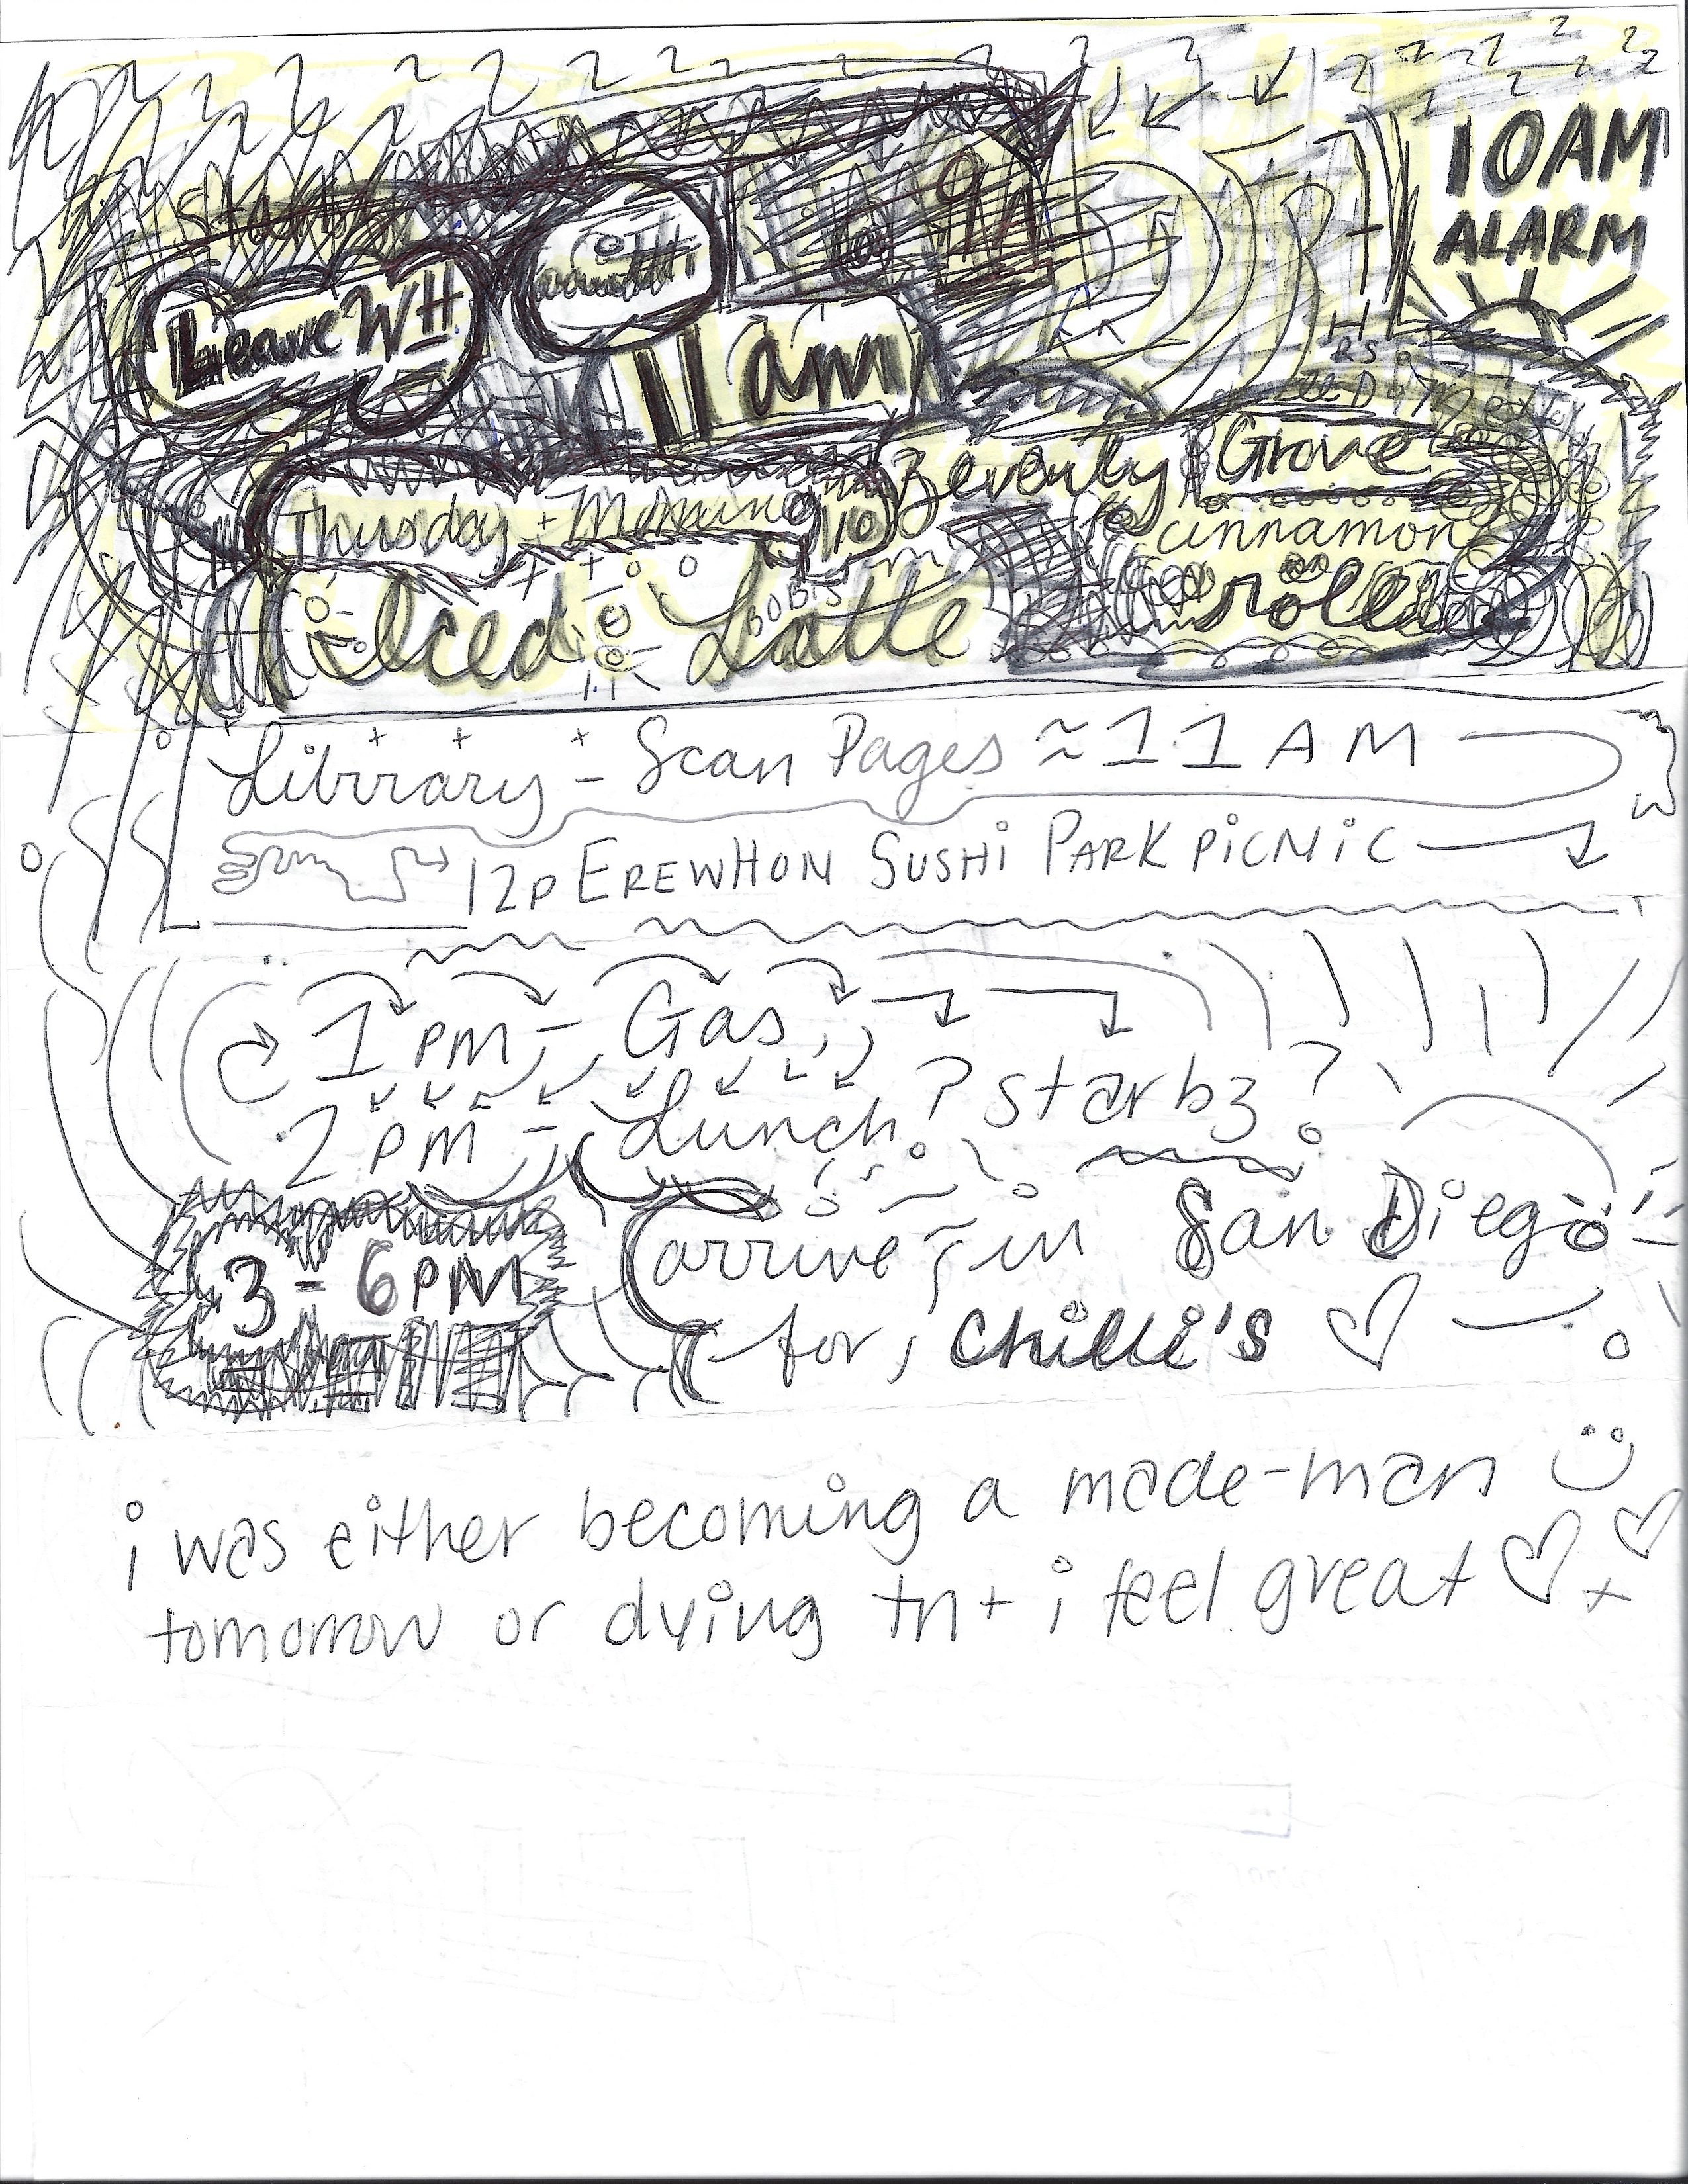 10AM
ALARM
Leave WH
11am
Beverly Grove
Thursday Morning
cinnamon
roll
Iced Latte
Library - Scan Pages ≈ 11 AM
12P EREWHON SUSHI PARK PiCNiC
1 PM - Gas
2 PM - Lunch ? starbz ?
3 - 6PM arrive in San Diego
for, Chilli's ♡
i was either becoming a made-man
tomorrow or dying tn + i feel great ♡